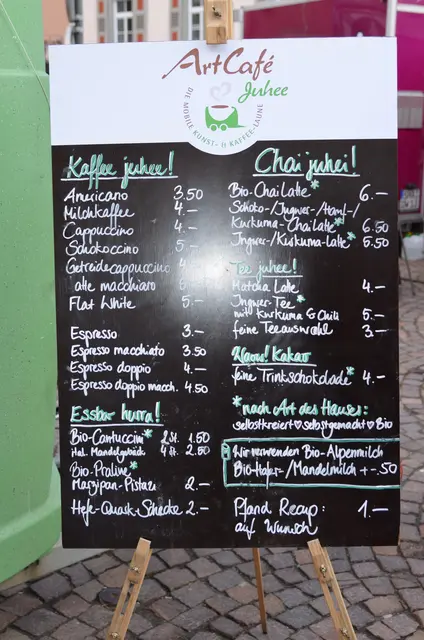 ArtCafé
Juhee
DIE MOBILE KUNST- & KAFFEE-LAUNE
Kaffee juhee!
Americano 3.50
Milchkaffee 4.–
Cappuccino 4.–
Schokoccino 5.–
Getreidecappuccino
macchiato
Flat White 5.–
Espresso 3.–
Espresso macchiato 3.50
Espresso doppio 4.–
Espresso doppio macch. 4.50
Essbar hurra!
Bio-Cantuccini* 2 St. 1.50
Ital. Mandelgebäck 4 St. 2.50
Bio-Praline*
Marzipan-Pistazi 2.–
Hefe-Quark-Schecke 2.–
Chai juhei!
Bio-Chai Latte* 6.–
Schoko-/Ingwer-/Hanf-/
Kurkuma-Chai Latte* 6.50
Ingwer-/Kurkuma-Latte* 5.50
Tee juhee!
Matcha Latte 4.–
Ingwer-Tee*
mit Kurkuma & Chili 5.–
feine Teeauswahl 3.–
Wow! Kakao
feine Trinkschokolade* 4.–
*nach Art des Hauses:
selbstkreiert♡selbstgemacht♡Bio
Wir verwenden Bio-Alpenmilch
Bio-Hafer-/Mandelmilch +-.50
Pfand Recup: 1.–
auf Wunsch